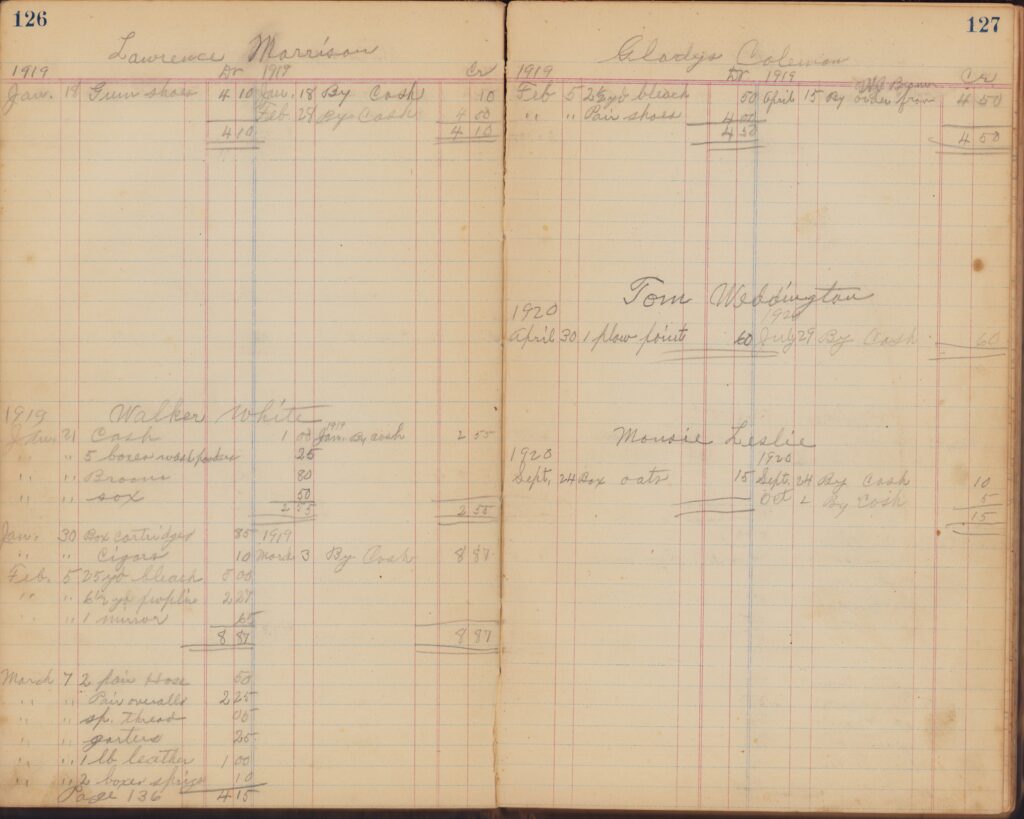 126
Lawrence Morrison
1919 Dr 1919 Cr
Jan. 18 Gum shoes 4 10 Jan. 18 By Cash 10
Feb 28 By Cash 4 00
4 10 4 10
1919 Walker White
Jan. 21 Cash 1 00 1919 Jan. By cash 2 55
" " 5 boxes wash powders 25
" " Broom 80
" " sox 50
2 55 2 55
Jan. 30 Box cartridges 85 1919
" " Cigars 10 March 3 By Cash 8 87
Feb. 5 25 yd bleach 5 00
" " 6½ yd poplin 2 27
" " 1 mirror 65
8 87 8 87
March 7 2 pair Hose 50
" " Pair overalls 2 25
" " sp. thread 05
" " garters 25
" " 1 lb leather 1 00
" " 2 boxes spice 10
Page 136 4 15
127
Gladys Coleman
1919 Dr 1919 Cr
Feb 5 2½ yd bleach 50 April 15 By order from 4 50
" " Pair shoes 4 00
4 50 4 50
Tom Weddington
1920 1920
April 30 1 plow point 60 July 29 By Cash 60
Mousie Leslie
1920 1920
Sept. 24 Box oats 15 Sept. 24 By Cash 10
Oct 2 By Cash 5
15